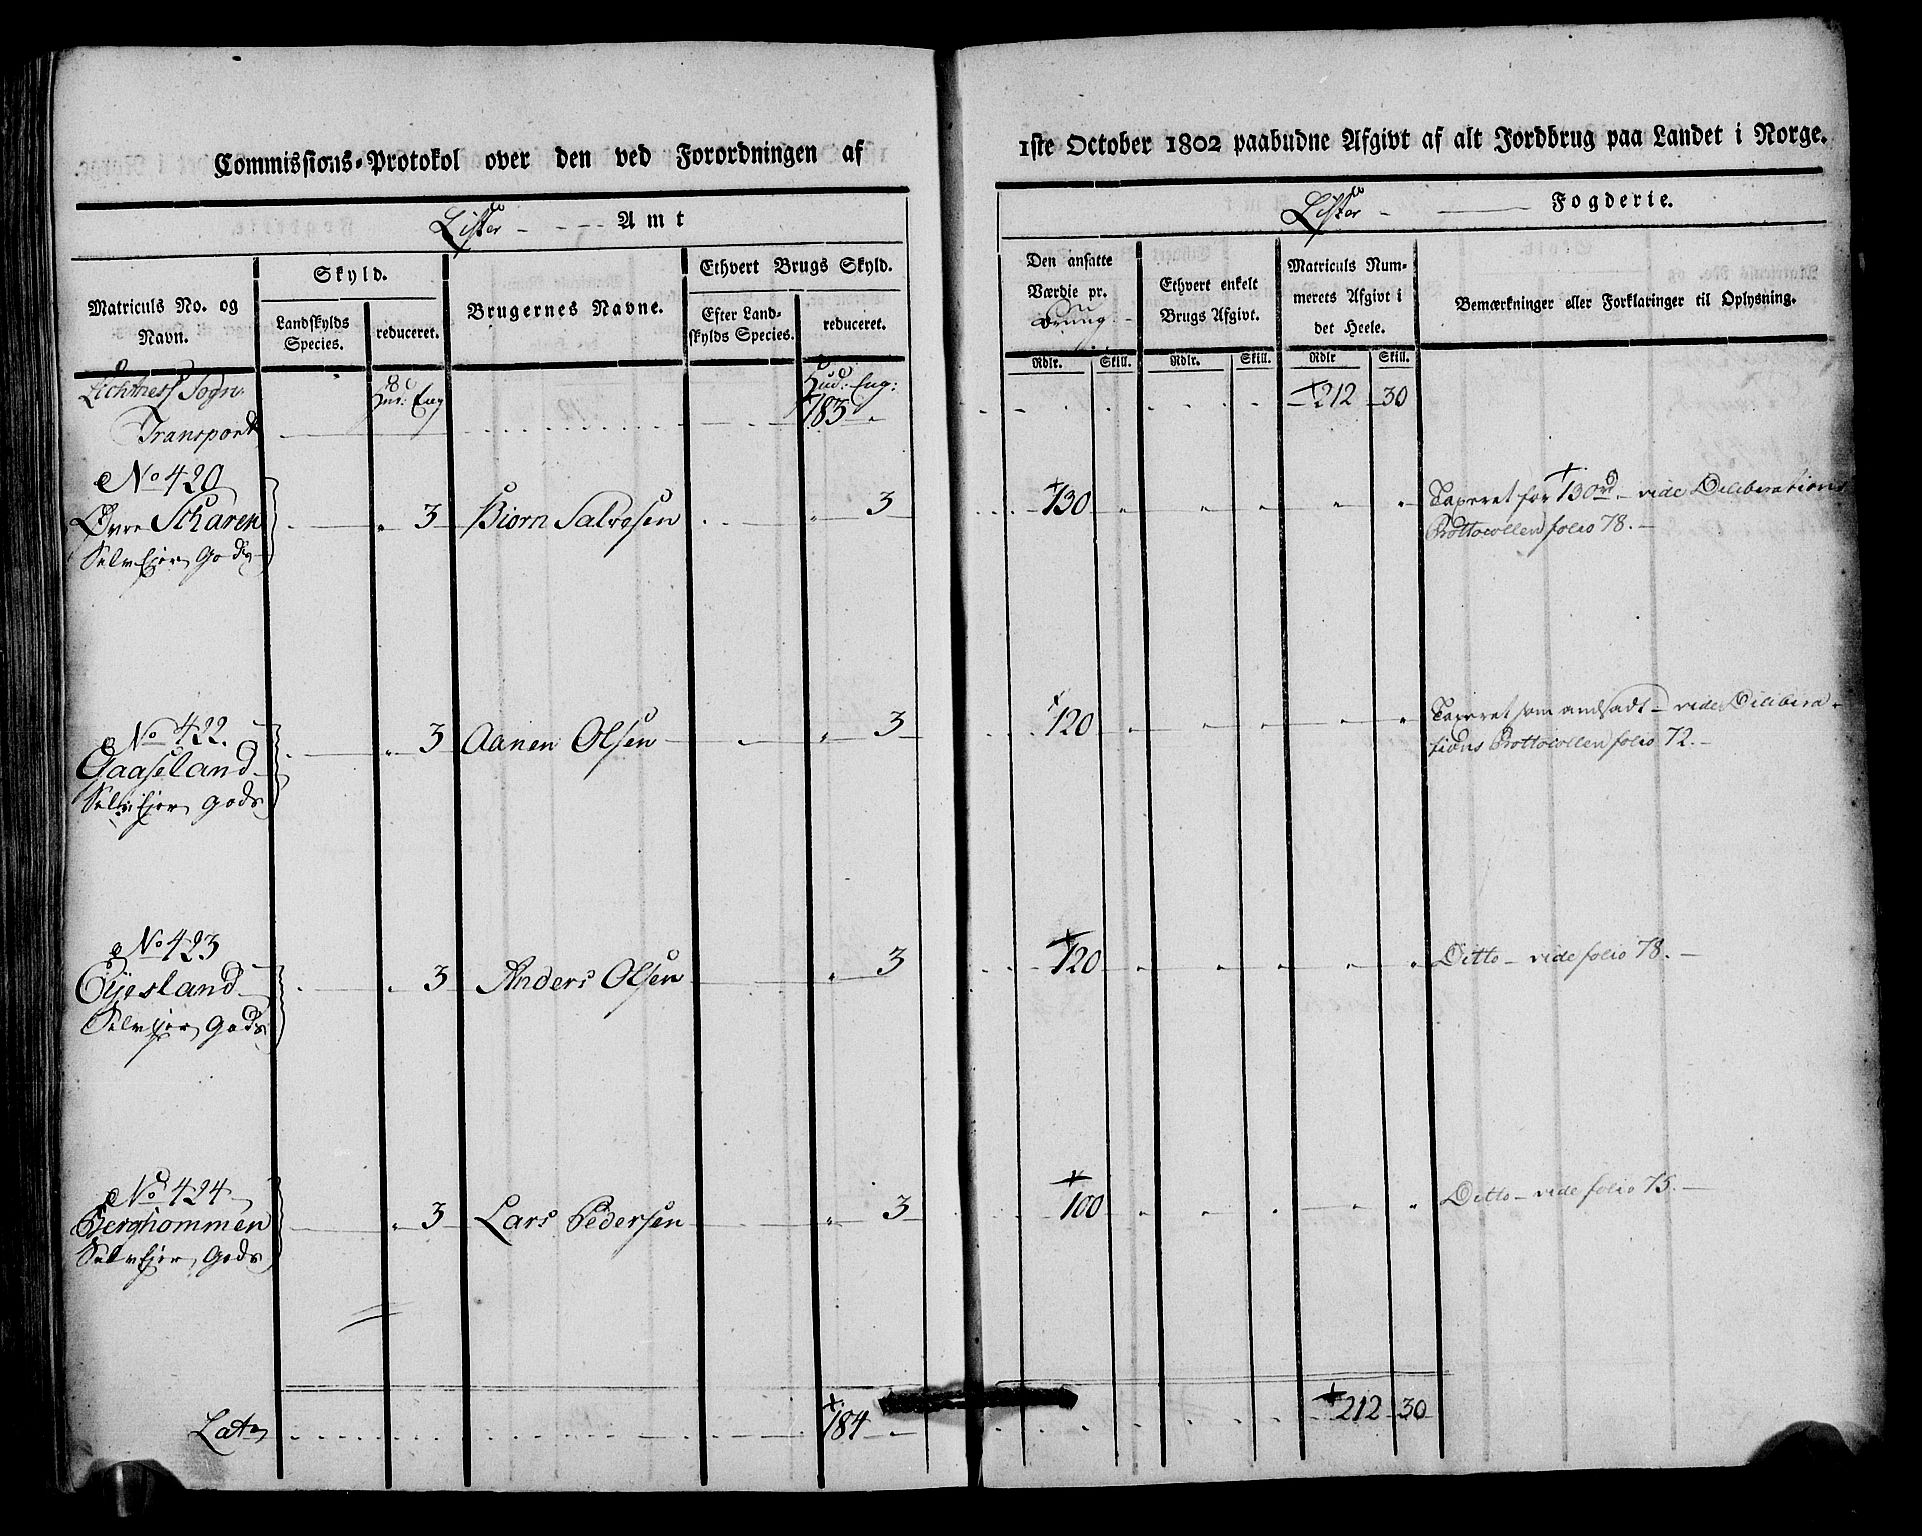 Commissions-Protokol over den ved Forordningen af
1ste October 1802 paabudne Afgivt af alt Jordbrug paa Landet i Norge.
Lister Amt
Lister Fogderie.
Matriculs No. og Navn.
Skyld.
Landskylds Species.
reduceret.
Brugernes Navne.
Ethvert Brugs Skyld.
Efter Landskylds Species.
reduceret.
Den ansatte Værdie pr.
Rdlr. Skill.
Ethvert enkelt Brugs Afgivt.
Rdlr. Skill.
Matriculs Nummerets Afgivt i det Heele.
Rdlr Skill.
Bemærkninger eller Forklaringer til Oplysning.
Sogn Hud: Eng:
Transport 183 212 30
No 420
Øvre Scharen 3 Biorn Salvesen 3 130 Taxeret for 130 rd – vide Deliberations
Selvejer Gods Prottocollen folio 78.
No 422.
Gaaseland 3 Aanen Olsen 3 120 Taxeret som andsadt – vide Delibera-
Selvejer Gods tions Prottocollen folio 72.
No 423
Eyesland 3 Anders Olsen 3 120 Ditto – vide folio 78.
Selvejer Gods
No 424
Berghommen 3 Lars Pedersen 3 100 Ditto – vide folio 75.
Selvejer Gods
Lat 184 212 30